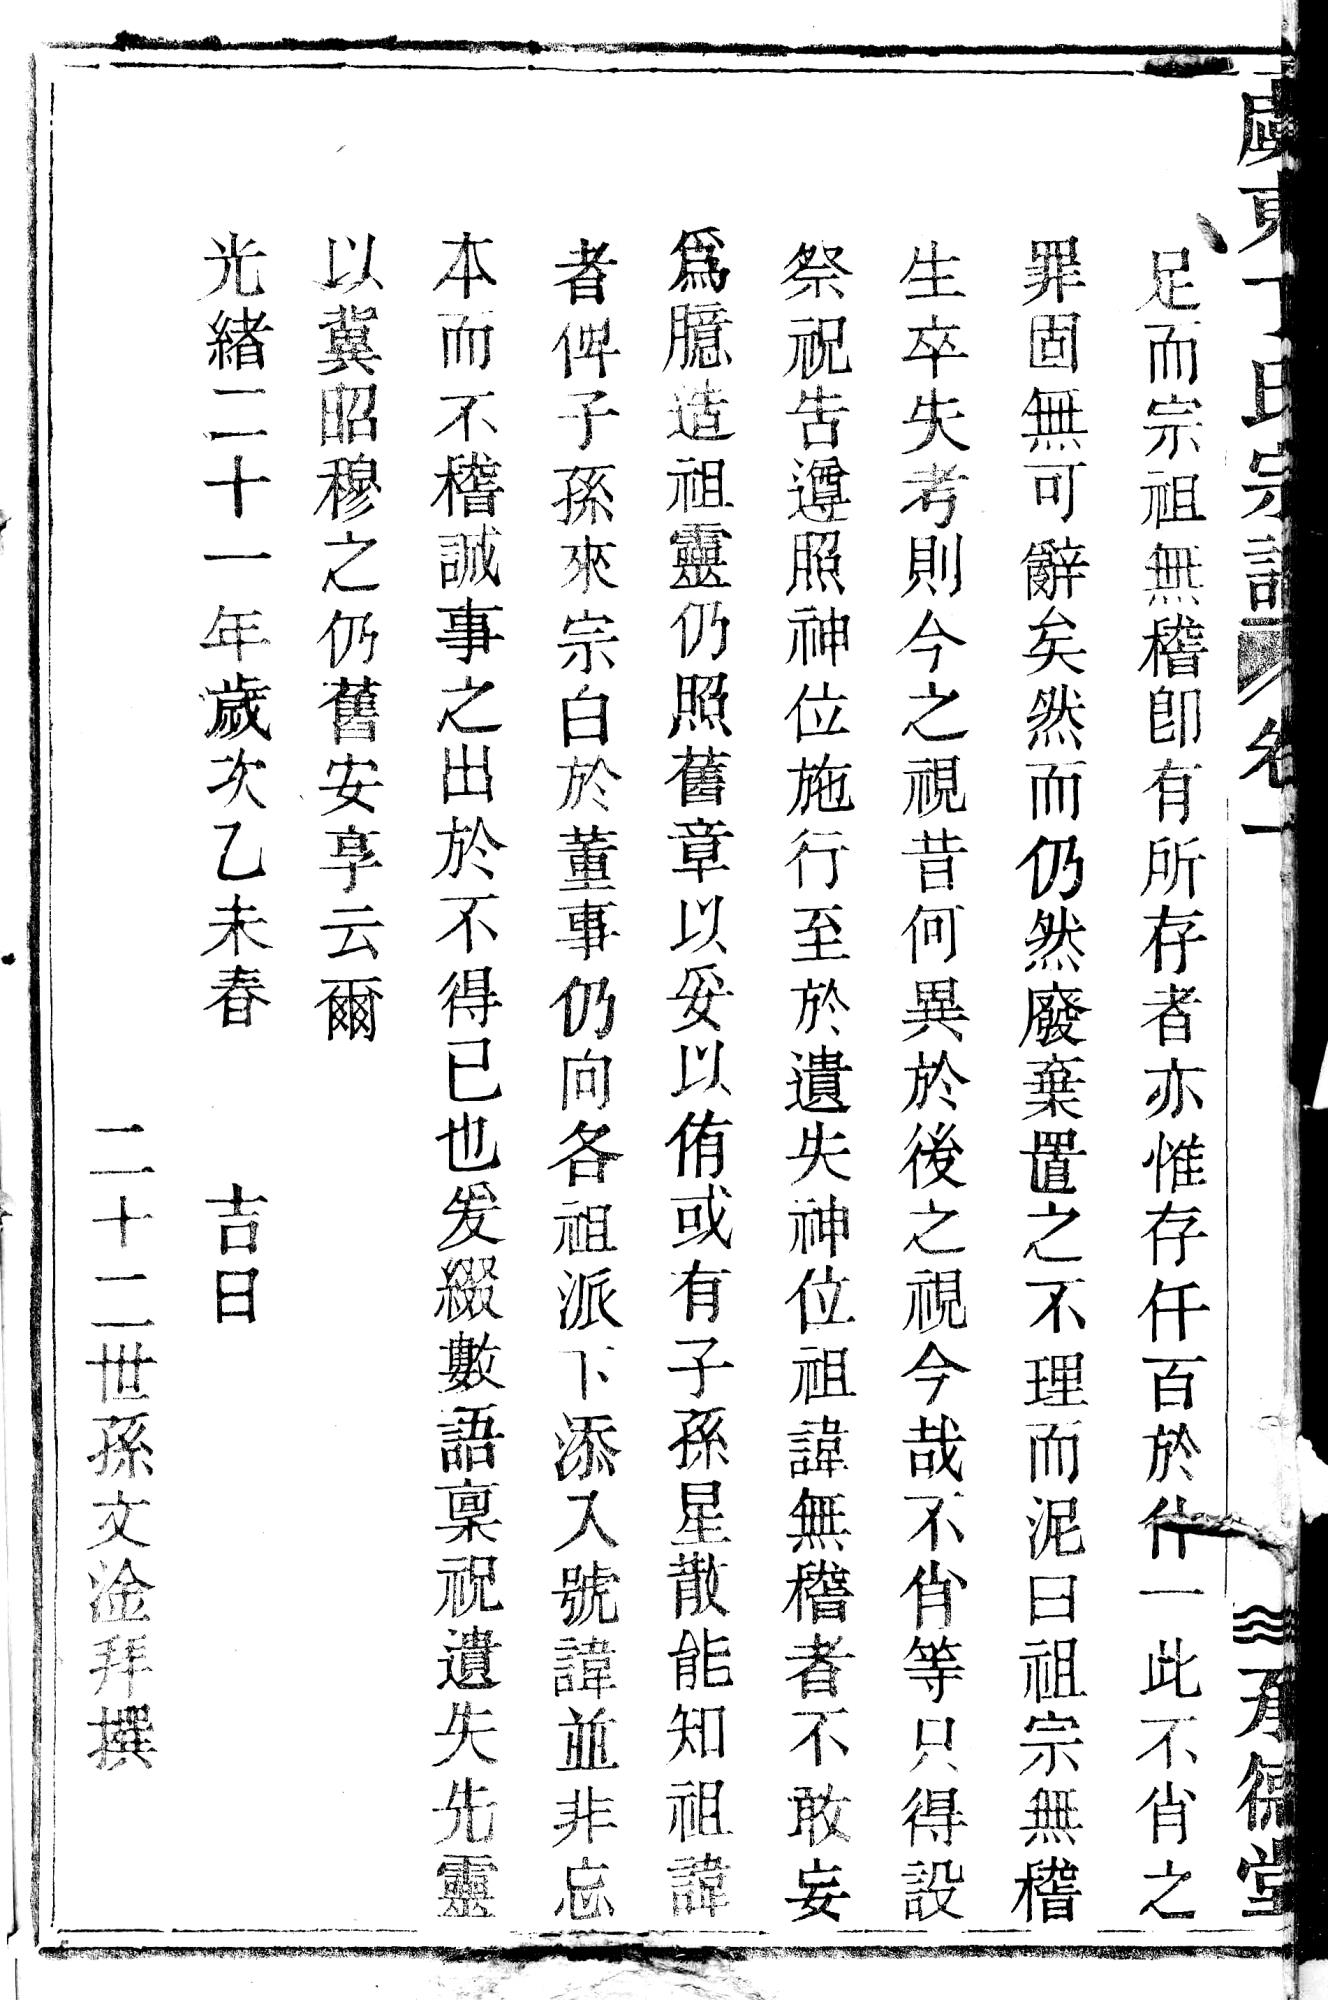 廣東丁氏宗譜 卷一 承德堂
足而宗祖無稽卽有所存者亦惟存仟百於什一此不肖之
罪固無可辭矣然而仍然廢棄置之不理而泥曰祖宗無稽
生卒失考則今之視昔何異於後之視今哉不肖等只得設
祭祝告遵照神位施行至於遺失神位祖諱無稽者不敢妄
爲臆造祖靈仍照舊章以妥以侑或有子孫星散能知祖諱
者俾子孫來宗白於董事仍向各祖派下添入號諱並非忘
本而不稽誠事之出於不得已也爰綴數語稟祝遺失先靈
以冀昭穆之仍舊安享云爾
光緒二十一年歲次乙未春 吉日
二十二世孫文淦拜撰